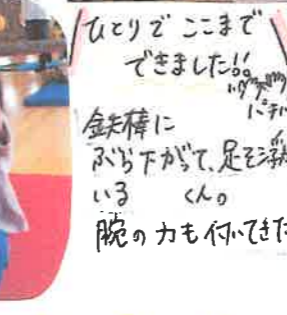 ひとりで ここまで
できました!!
パチパチ
鉄棒に
ぶら下がって、足を浮
いる くん。
腕の力も付いてきた